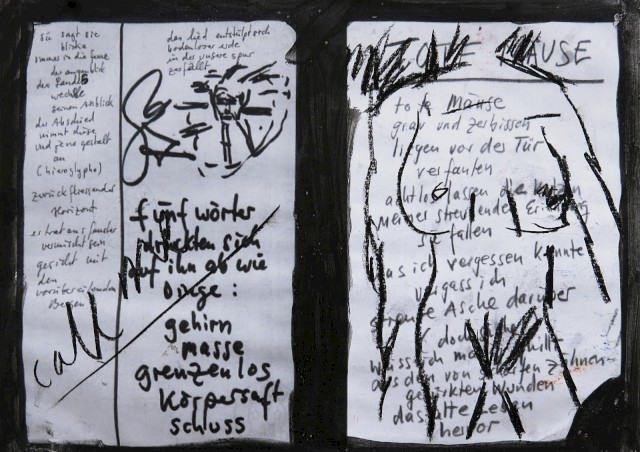 sie sagt sie
blicke
immer in die ferne
der
der Landle
wechsle
seinen Anblick
der Abschied
nimmt diese
und jene gestalt
an
(Hieroglyphe)
zurück fliessender
Horizont
er trat ans fenster
vermischt sein
gesicht mit
den
vorübereilenden
Bergen
das lied entstülpt sich
bodenloser erde
in der unsere spur
zerfällt
fünf wörter
drückten sich
auf ihn ab wie
Dinge:
gehirn
masse
grenzenlos
körpersaft
schluss
call
TOTE MAUSE
tote Mause
grau und zerbissen
liegen vor des Tür
verfaulen
achtlos lassen die Katzen
meiner streunenden Erinnerung
sie fallen
was ich vergessen konnte
vergass ich
streute Asche darüber
doch
weiss ich
aus den von scharfen Zähnen
gewirkten Wunden
das alte Leben
hervor